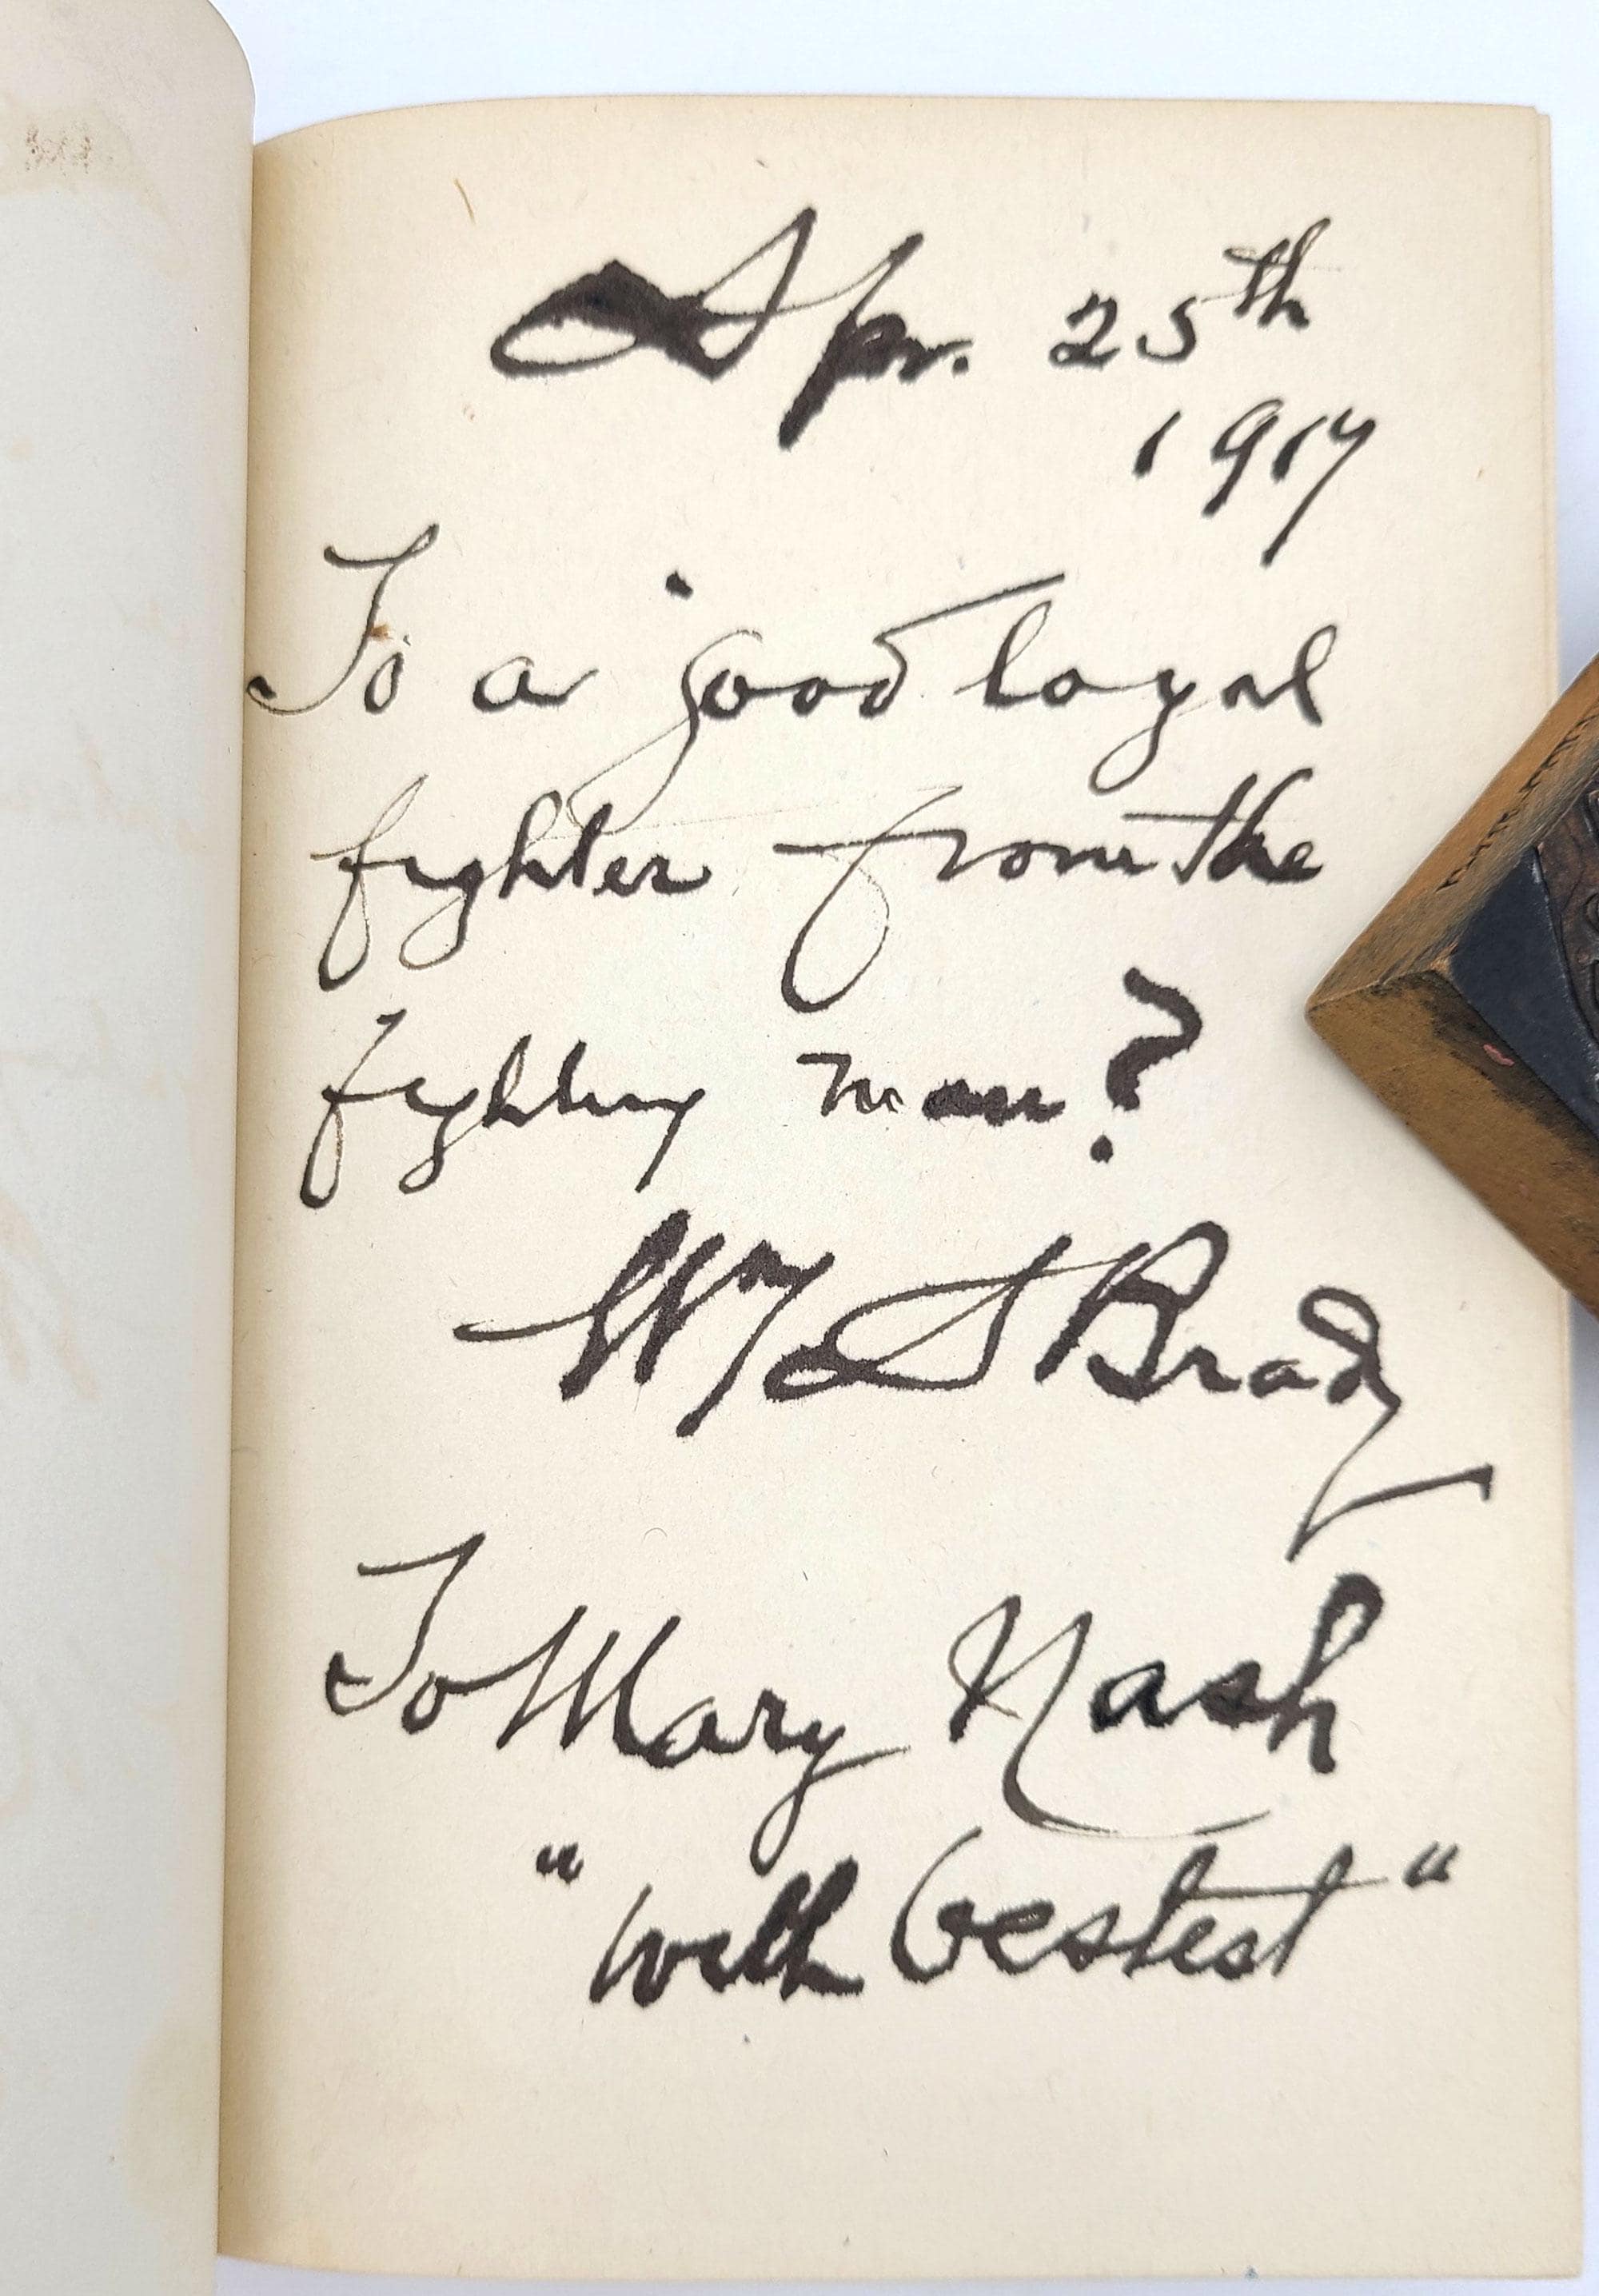 Apr. 25th
1917
To a good loyal
fighter from the
fighting man?
Wm A Brady
To Mary Nash
"With bestest"